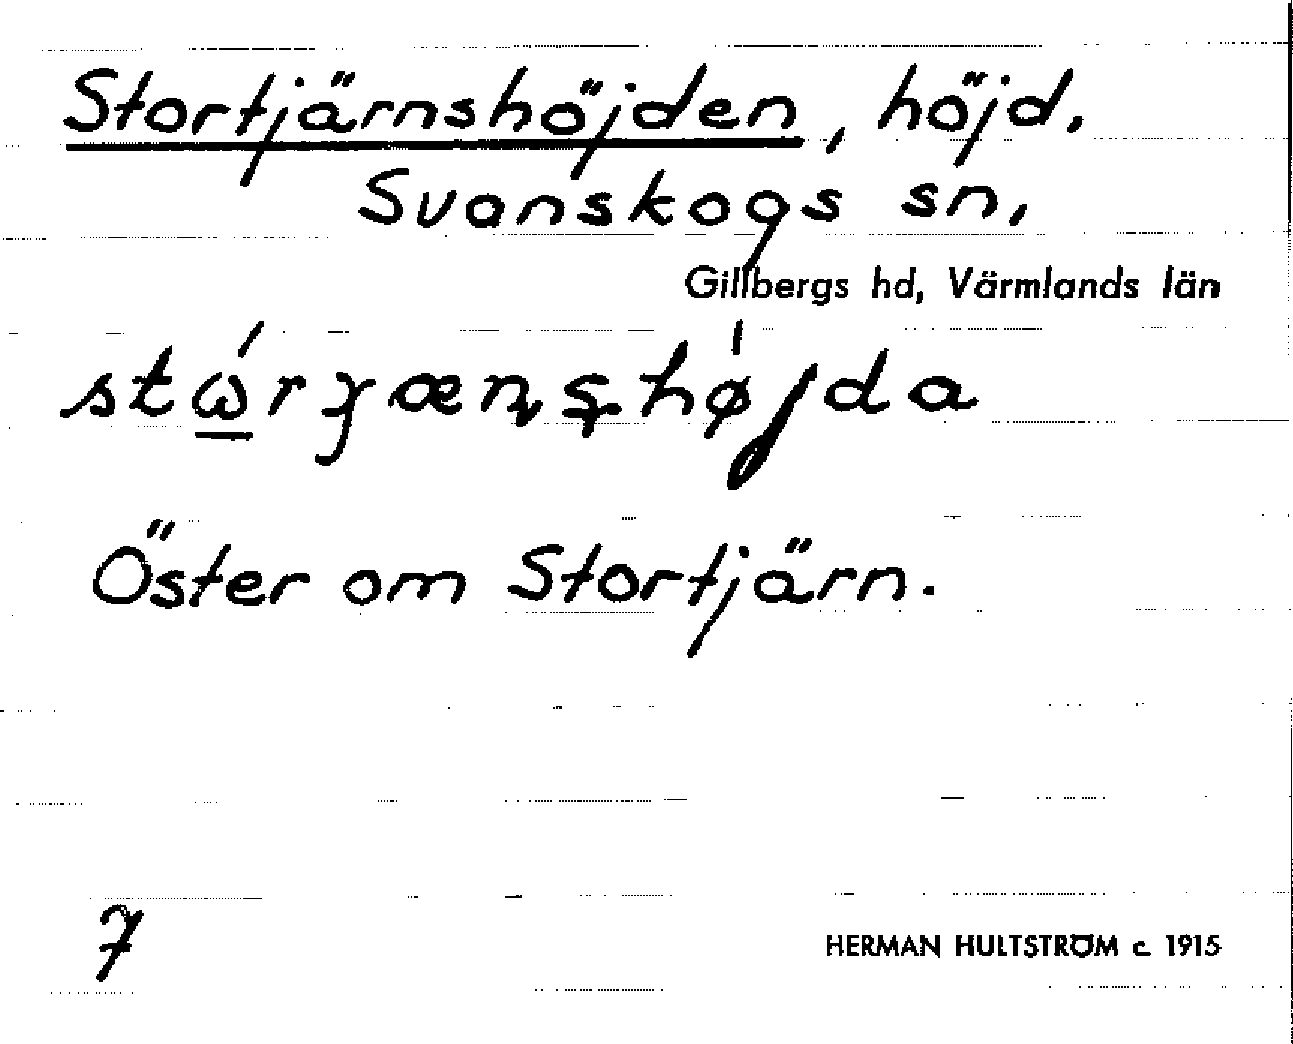 Stortjärnshöjden, höjd.
Svanskogs sn,
Gillbergs hd, Värmlands län
Öster om Stortjärn.
7
HERMAN HULTSTRÖM c. 1915